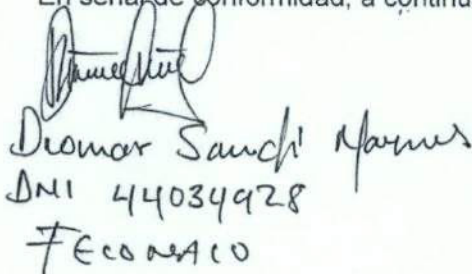 En señal de conformidad, a continu
Diomar Sanchi
DNI 44034928
FECONACO